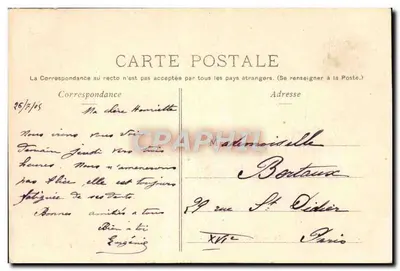 CARTE POSTALE
La Correspondance au recto n'est pas acceptée par tous les pays étrangers. (Se renseigner à la Poste.)
Correspondance
Adresse
Ma chère Henriette
Nous irons vous voir
demain jeudi vers trois
heures. Nous n'amènerons
pas Alice, elle est toujours
fatiguée de ses dents
Bonnes amitiés à tous
Bien à toi
Eugénie
Mademoiselle
Bertaux
39 rue St Didier
XVIe
Paris
CPAPHIL